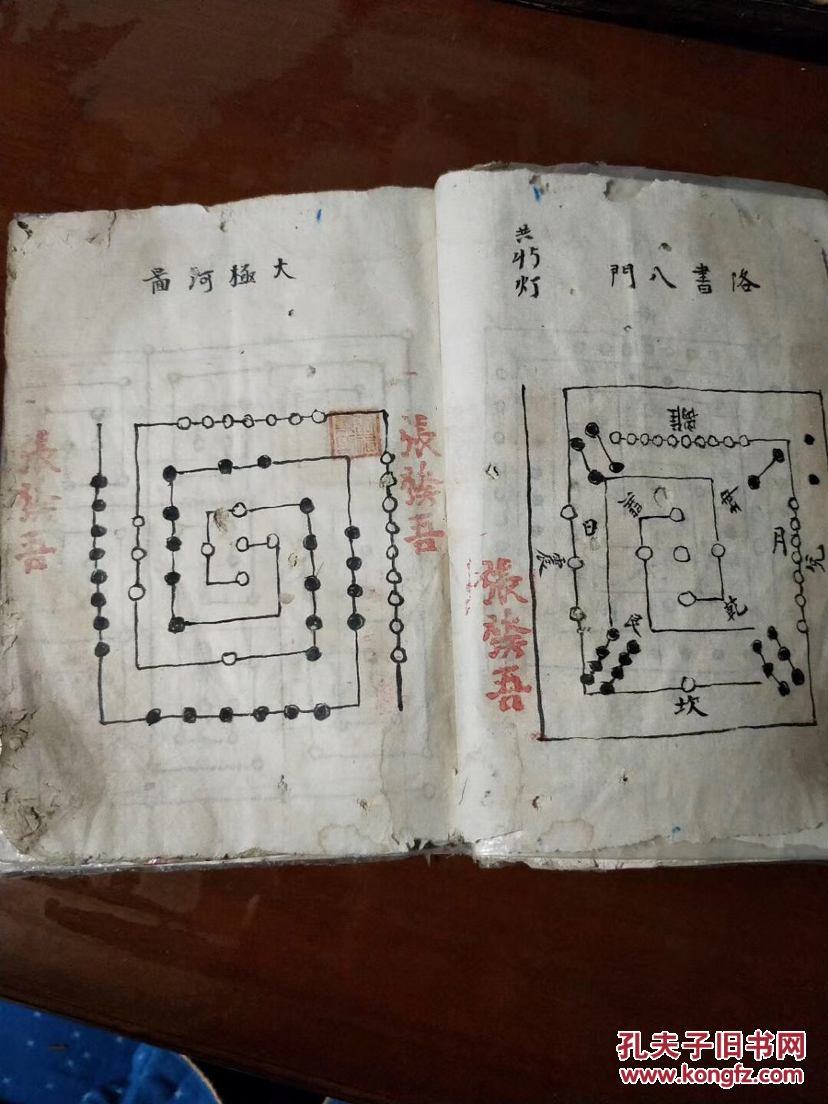 洛書八門
共
灯
離
日
震
月
艮
坎
張發吾
大極河啚
張發吾
張發吾
孔夫子旧书网
www.kongfz.com